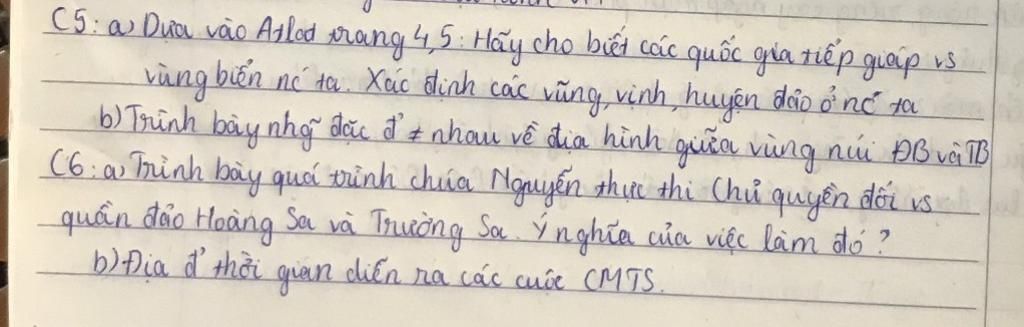 C5: a) Dựa vào Atlat trang 4,5: Hãy cho biết các quốc gia tiếp giáp vs
vùng biển nc ta. Xác định các vũng, vịnh, huyện đảo ở nc ta
b) Trình bày nhg~ đặc đ' ≠ nhau về địa hình giữa vùng núi ĐB và TB
C6: a) Trình bày quá trình chúa Nguyễn thực thi Chủ quyền đối vs
quần đảo Hoàng Sa và Trường Sa. Ý nghĩa của việc làm đó?
b) Địa đ' thời gian diễn ra các cuộc CMTS.